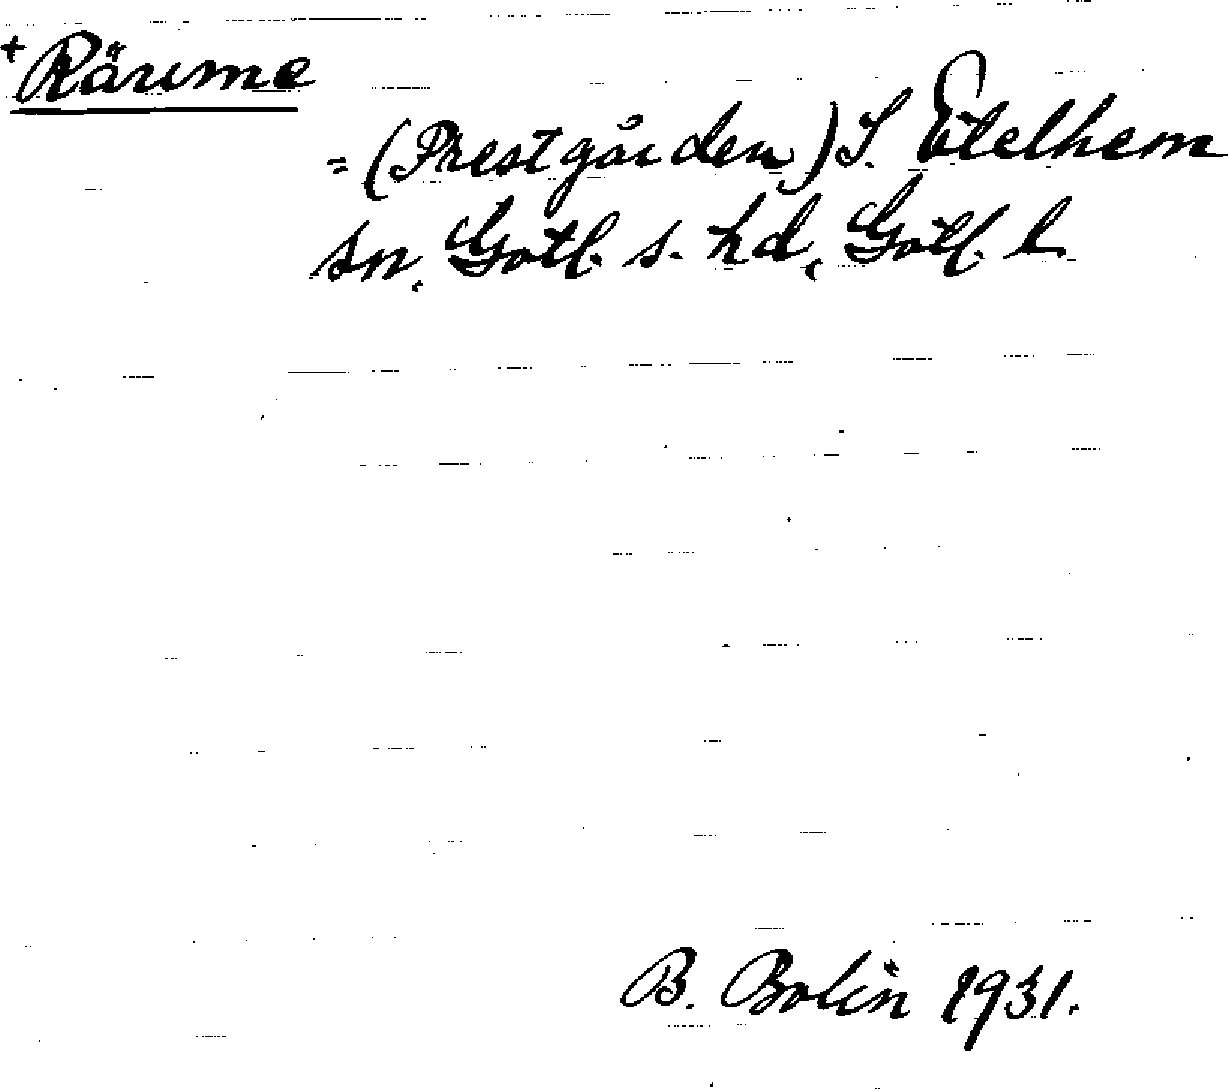 +Räume
= (Prestgården) I. Etelhem
sn, Gotl. s. hd, Gotl. l.
B. Bolin 1931.